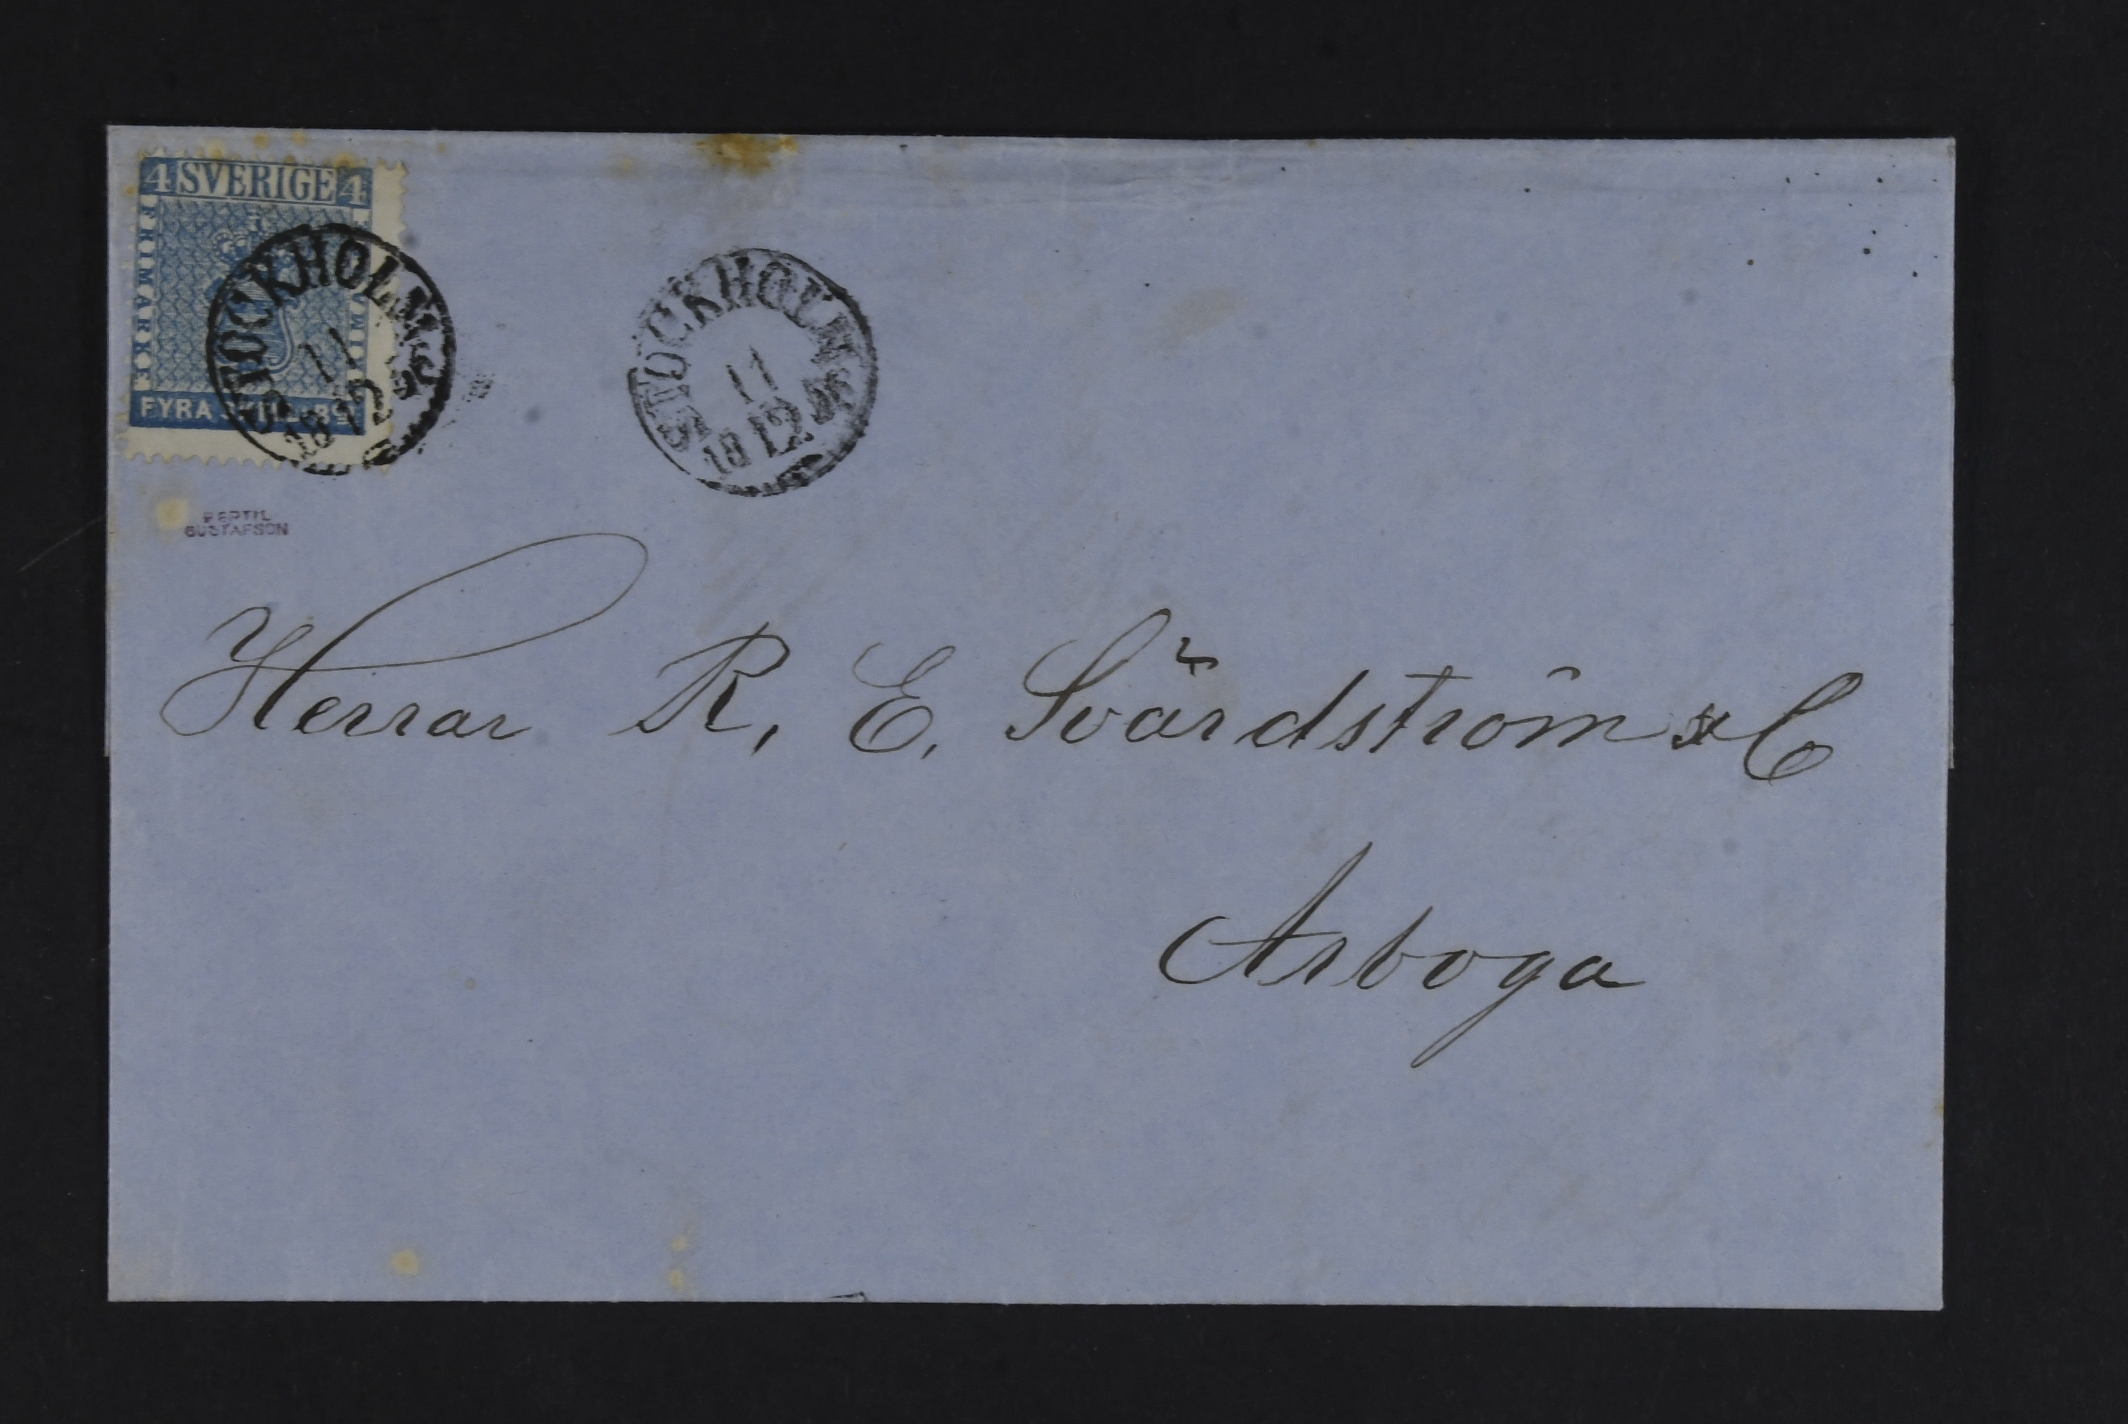 4 SVERIGE 4
FRIMÄRKE
FYRA SKILL. BCO
STOCKHOLM
11
12
STOCKHOLM
11
12
BERTIL
GUSTAFSON
Herrar R. E. Svärdström & C
Arboga